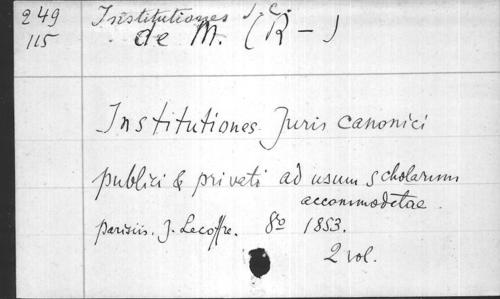 249
115
Institutiones J. C.
de M. (R-)
Institutiones Juris canonici
publici & privati ad usum scholarum
accommodatae.
parisiis. J. Lecoffre. 8º 1853.
2 vol.